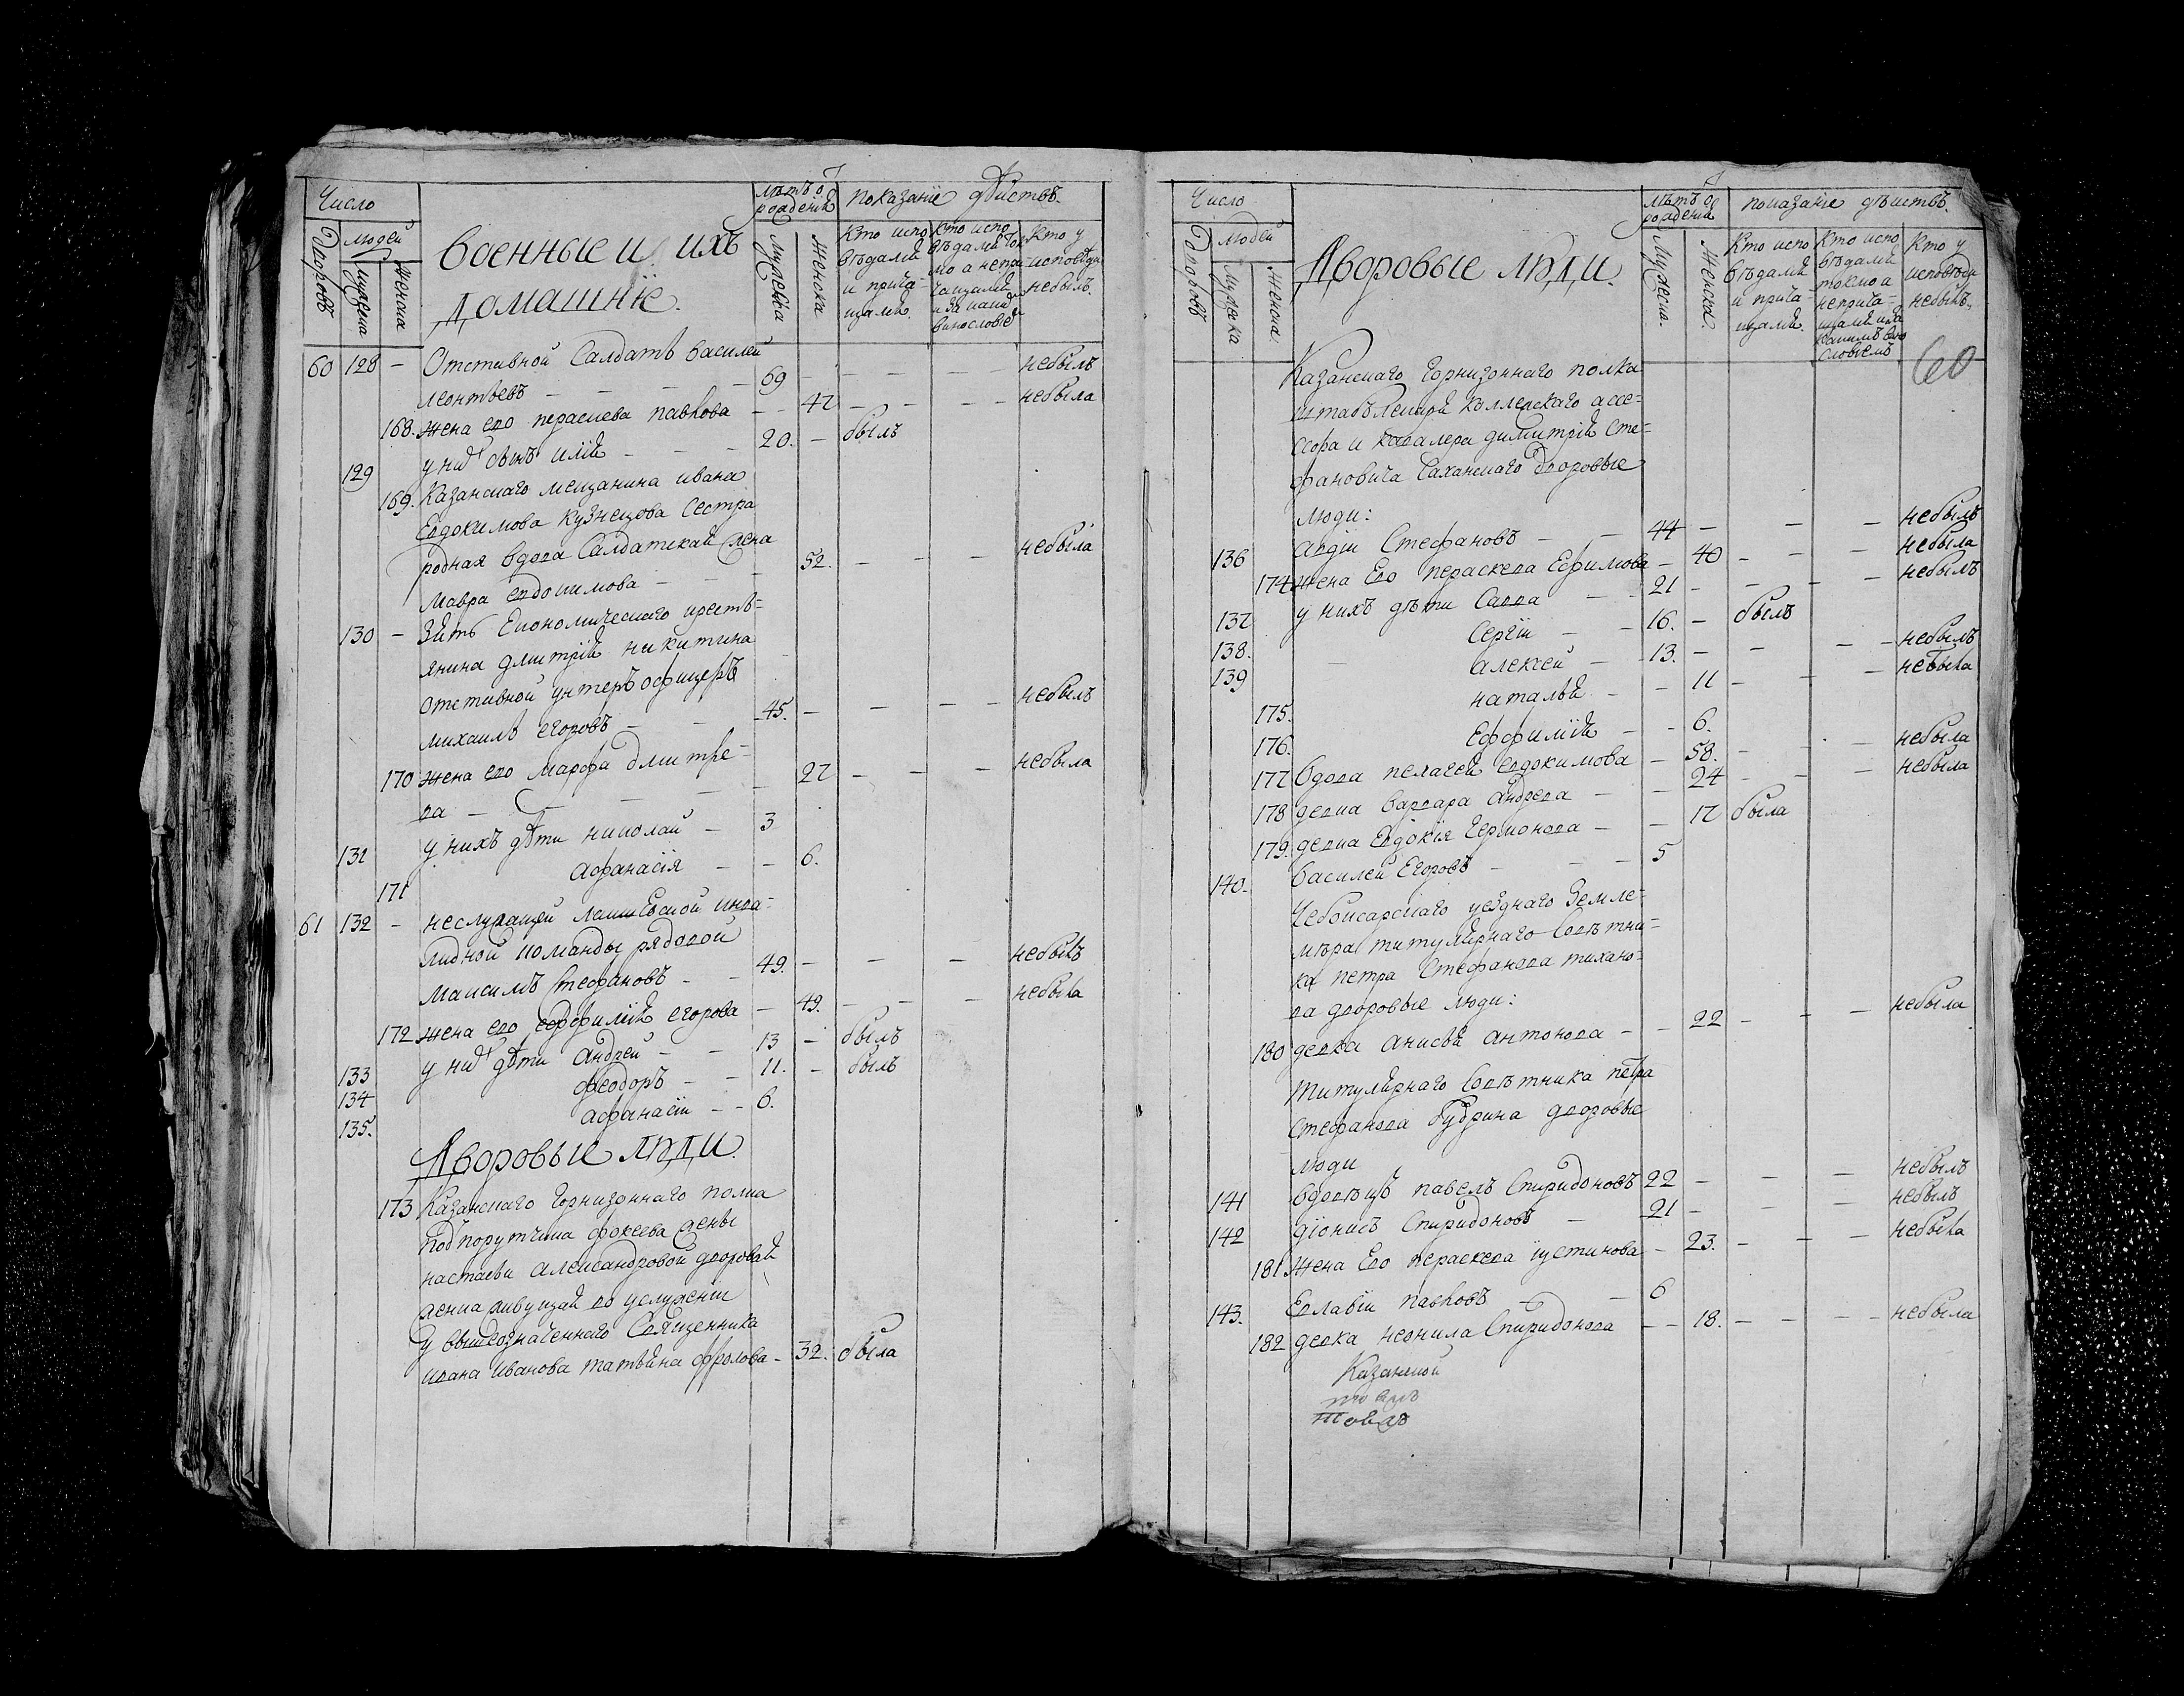 Число
Дворовъ
людей
мужска
женска
военные и ихъ
домашніе.
лѣтъ о
рождѣніи
Мужеска
Женска
показаніе дѣйствъ.
Кто испо
вѣдали
и прича
щали.
Кто испо
вѣдали то
мо а непри
чащали
и за каки
винословіе
Кто у
исповѣди
небылъ.
60 128 - Отставной Салдатъ василей небылъ
леонтьевъ - - - 69 - - - -
168. жена ево параскева павлова - - 47 - - - - небыла
129 у них сынъ илія - - - 20. - былъ
169. Казанскаго мещанина ивана
Евдокимова Кузнецова Сестра
родная вдова Салдатская жена
Мавра евдокимова - - - 52. - - - небыла
130 - Зять Економическаго кресть=
янина дмитрія никитина
отставной унтеръ офицеръ
михаилъ егоровъ - - - 45. - - - - небылъ
170 жена ево Марфа дмитре=
ва - - - - 27 - - - небыла
131 у нихъ дѣти николай - 3
171 афанасія - - 6.
61 132 - неслужащей лаишевской инва=
лидной команды рядовой
Максимъ Стефановъ - - 49. - - - небылъ
172 жена ево еффимія егорова - 49. - - - небыла
133 у них дѣти андрей - - 13 - былъ
134 феодоръ - - 11. - былъ
135. афанасіи - - 6.
Дворовые люди.
173 Казанскаго Горнизоннаго полка
подпорутчика фокеева жены
настасьи александровой дворовая
женка живущая во услуженіи
у вышеозначеннаго Священника
ивана иванова татьяна ффролова - 32. была
Число
Дворовъ
людей
Мужска
Женска
Дворовые люди.
лѣтъ о
рождѣніи
Мужеска.
Женска.
показаніе дѣиствъ.
Кто испо
вѣдали
и прича
щали.
Кто испо
вѣдали
токмо а
неприча=
щали и за
какимъ вино
словіемъ
Кто у
исповѣди
небылъ.
60
Казанскаго Горнизоннаго полка
штабъ лекаря коллежскаго ассе=
ссора и кавалера димитрія Сте=
фановича Саханскаго дворовые
люди:
136 авдіи Стефановъ - - 44 - - - небылъ
174 жена Ево параскева Ефимова - 40 - - - небыла
137 у нихъ дѣти Савва - - 21 - - - - небылъ
138. Сергіи - - 16. - былъ
139 алексей - - 13. - - - - небылъ
175. наталья - - 11 - - - небыла
176. Еффимія - - 6.
177 Вдова пелагея евдокимова - 58. - - - небыла
178 девка варвара андреева - - 24 - - - небыла
179. девка Евдокія Гермонова - - 17 была
140. василей Егоровъ - - - 5
Чебоксарскаго уезднаго Земле=
мѣра титулярнаго Совѣтни=
ка петра Стефанова тихано=
ва дворовые люди:
180 девка анисья антонова - - 22 - - - небыла
титулярнаго Совѣтника петра
Стефанова Бубрина дворовые
люди
141 вдовѣцъ павелъ Спиридоновъ 22 - - - небылъ
142 діонисъ Спиридоновъ - 21 - - - небылъ
181 жена Ево параскева іустинова - 23. - - - небыла
143. Евлавіи павловъ - - 6
182 девка неонила Спиридонова - - 18. - - - - небыла
Казанской